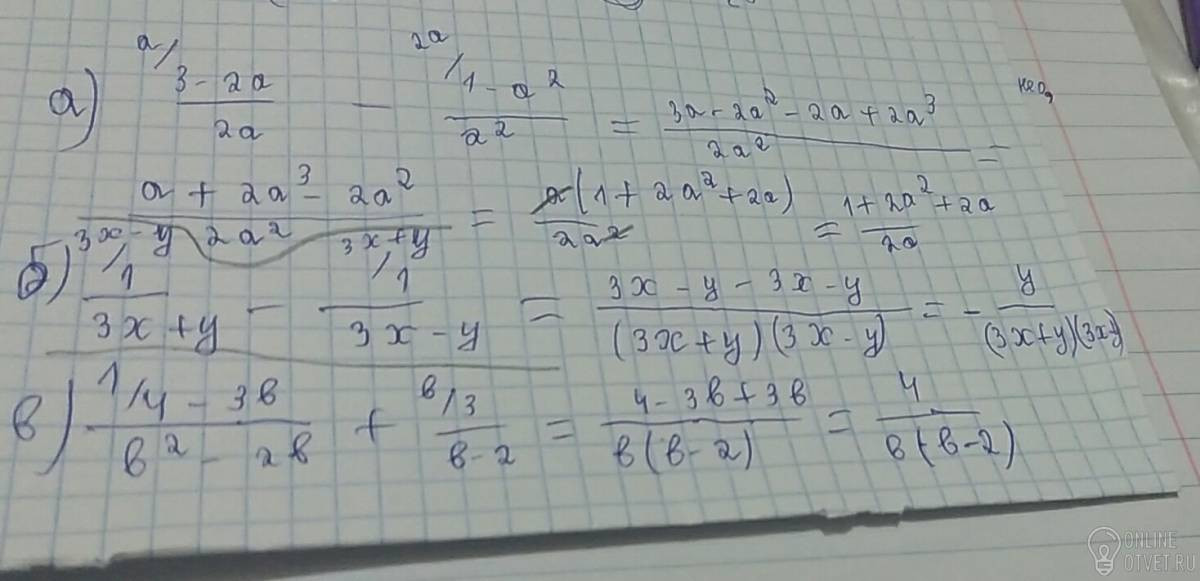 a/ 2a/
а) (3 - 2a)/(2a) - (1 - a²)/(a²) = (3a - 2a² - 2a + 2a³)/(2a²) =
(a + 2a³ - 2a²)/(2a²) = a(1 + 2a² + 2a)/(2a²) = (1 + 2a² + 2a)/(2a)
3x - y/ 3x + y/
б) 1/(3x + y) - 1/(3x - y) = (3x - y - 3x - y)/((3x + y)(3x - y)) = - y/((3x + y)(3x - y))
1/ в/
в) (4 - 3в)/(в² - 2в) + 3/(в - 2) = (4 - 3в + 3в)/(в(в - 2)) = 4/(в(в - 2))
ONLINE
OTVET.RU